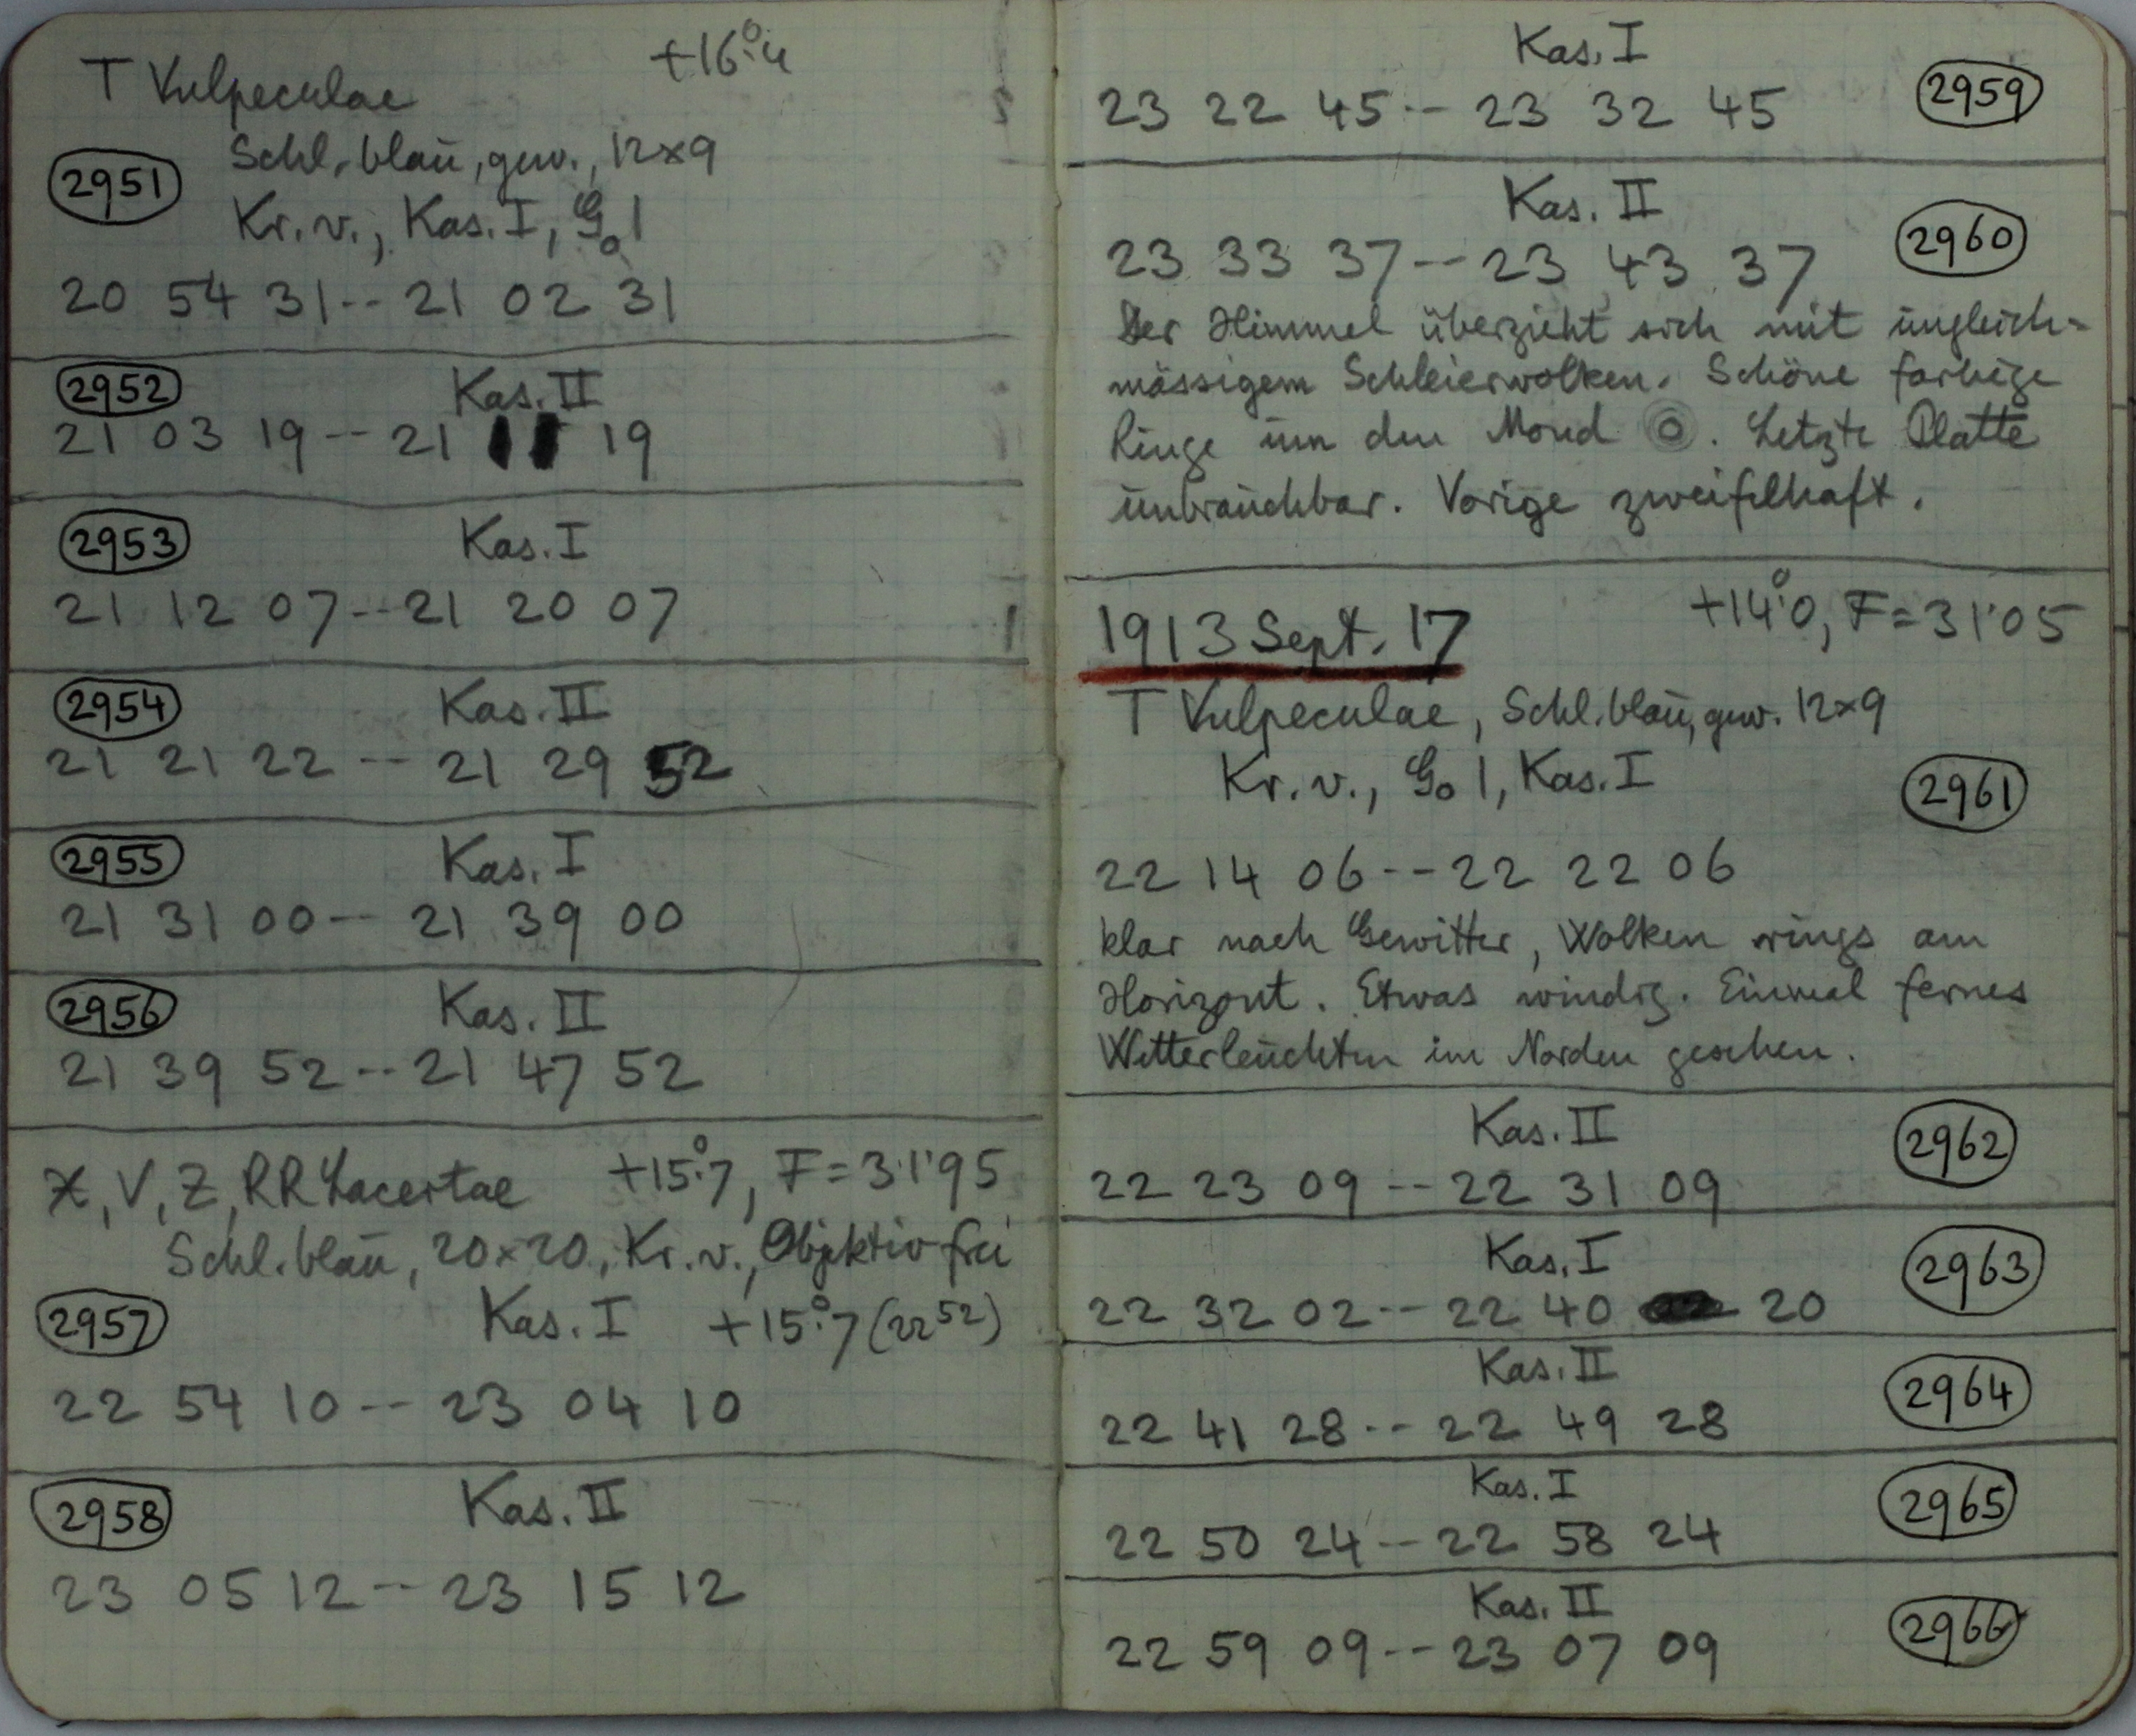 T Vulpeculae +16°.4
2951 Schl. blau, gew., 12×9
Kr. v., Kas. I, G₀ 1
20 54 31 -- 21 02 31
2952 Kas. II
21 03 19 -- 21 11 19
2953 Kas. I
21 12 07 -- 21 20 07
2954 Kas. II
21 21 22 -- 21 29 52
2955 Kas. I
21 31 00 -- 21 39 00
2956 Kas. II
21 39 52 -- 21 47 52
X, V, Z, RR Lacertae +15°.7, F = 31'95
Schl. blau, 20×20, Kr. v., Objektiv frei
2957 Kas. I +15°.7 (22 52)
22 54 10 -- 23 04 10
2958 Kas. II
23 05 12 -- 23 15 12
Kas. I
23 22 45 -- 23 32 45 2959
Kas. II
23 33 37 -- 23 43 37 2960
Der Himmel überzieht sich mit ungleich-
mässigem Schleierwolken. Schöne farbige
Ringe um den Mond. Letzte Platte
unbrauchbar. Vorige zweifelhaft.
1913 Sept. 17 +14°.0, F = 31'05
T Vulpeculae, Schl. blau, gew. 12×9
Kr. v., G₀ 1, Kas. I 2961
22 14 06 -- 22 22 06
klar nach Gewitter, Wolken rings am
Horizont. Etwas windig. Einmal fernes
Wetterleuchten im Norden gesehen.
Kas. II 2962
22 23 09 -- 22 31 09
Kas. I 2963
22 32 02 -- 22 40 20
Kas. II 2964
22 41 28 -- 22 49 28
Kas. I 2965
22 50 24 -- 22 58 24
Kas. II 2966
22 59 09 -- 23 07 09